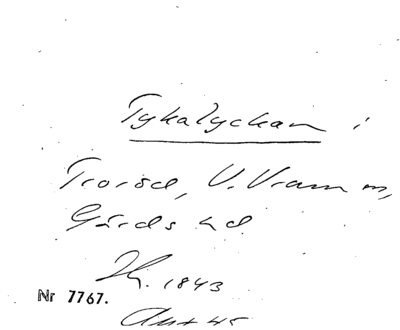 Tykalyckan i
Trorsd, V. Vram m,
Gärds hd
1843
Nr 7767.